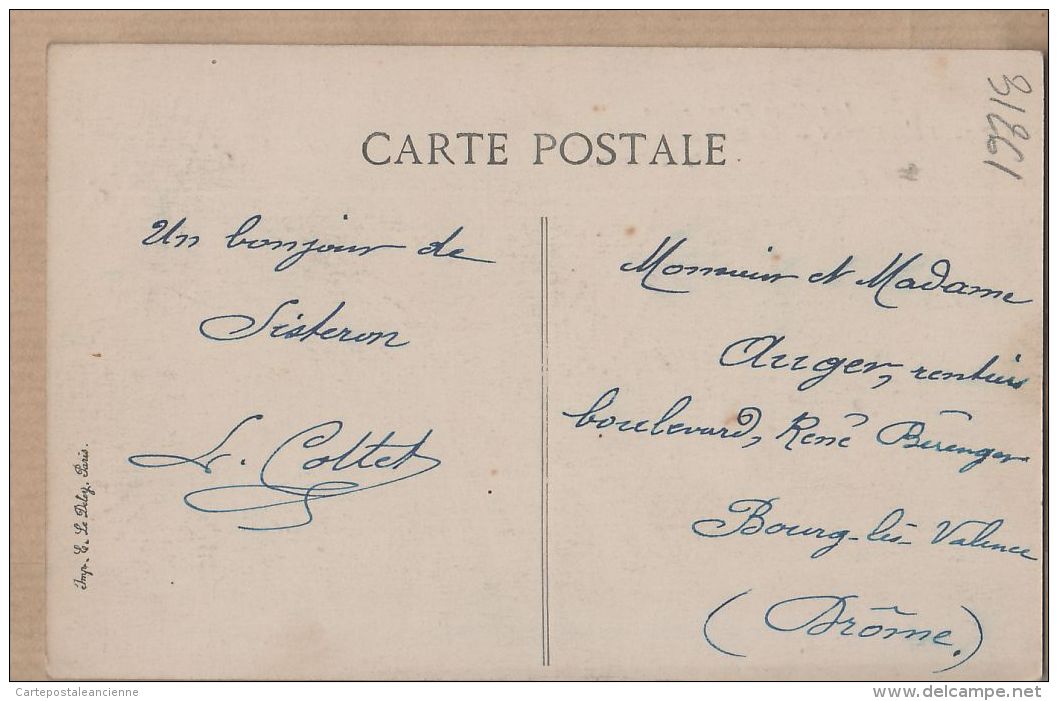 31261
CARTE POSTALE
Un bonjour de
Sisteron
L. Collet
Monsieur et Madame
Auger, rentiers
boulevard, René Bérenger
Bourg-lès-Valence
(Drôme.)
Imp. E. Le Deley, Paris.
Cartepostaleancienne
www.delcampe.net